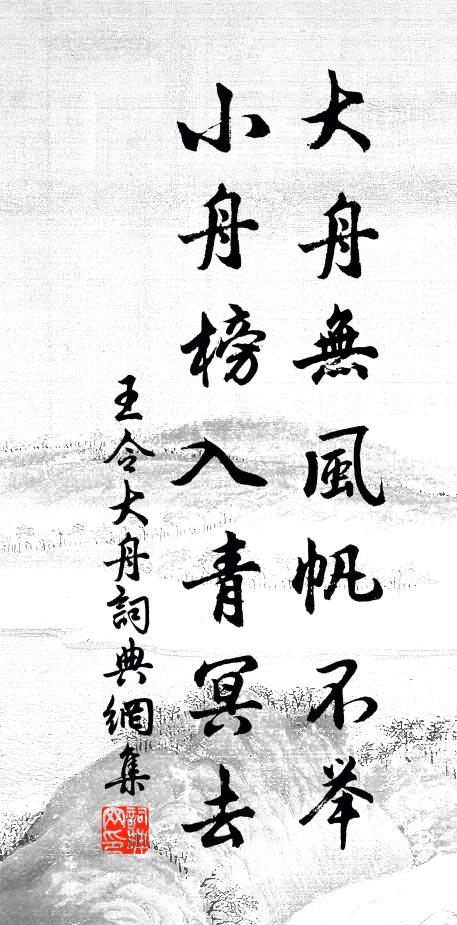 大舟無風帆不举
小舟榜入青冥去
王令大舟詞典網集